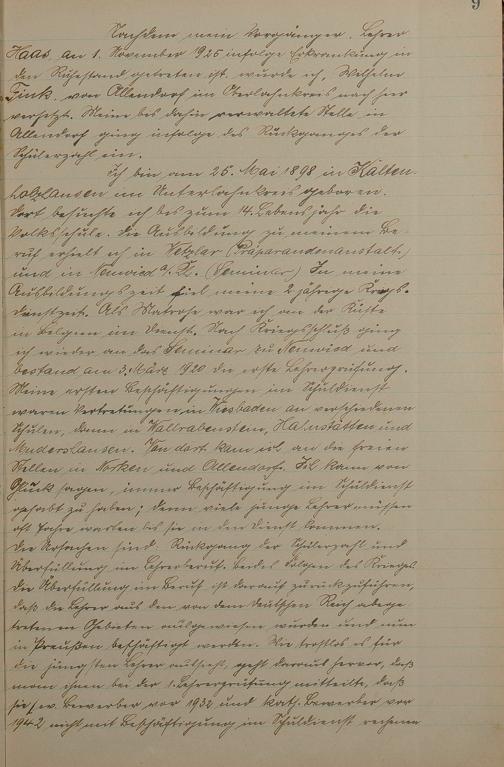 9
Nachdem mein Vorgänger, Lehrer
Haas, am 1. November 1925 infolge Erkrankung in
den Ruhestand getreten ist, wurde ich, Wilhelm
Fink, von Allendorf im Oberlahnkreis nach hier
versetzt. Meine bis dahin verwaltete Stelle in
Allendorf ging infolge des Rückganges der
Schülerzahl ein.
Ich bin am 25. Mai 1898 in Kalten-
holzhausen im Unterlahnkreis geboren.
Dort besuchte ich bis zum 14. Lebensjahr die
Volksschule. Die Ausbildung zu meinem Be-
ruf erhielt ich in Wetzlar (Präparandenanstalt)
und in Neuwied a/ Rh. (Seminar) In meine
Ausbildungszeit fiel meine 2 jährige Kriegs-
dienstzeit. Als Matrose war ich an der Küste
in Belgien im Dienst. Nach Kriegsschluß ging
ich wieder an das Seminar zu Neuwied und
bestand am 3. März 1920 die erste Lehrerprüfung.
Meine ersten Beschäftigungen im Schuldienst
waren Vertretungen in Wiesbaden an verschiedenen
Schulen, dann in Wallrabenstein, Hahnstätten und
Mudershausen. Von dort kam ich an die freien
Stellen in Norken und Allendorf. Ich kann von
Glück sagen, immer Beschäftigung im Schuldienst
gehabt zu haben; denn viele junge Lehrer müssen
oft Jahre warten bis sie in den Dienst kommen.
Die Ursachen sind: Rückgang der Schülerzahl und
Überfüllung im Lehrerberuf. Beides Folgen des Krieges.
Die Überfüllung im Beruf ist darauf zurückzuführen,
daß die Lehrer aus den von dem Deutschen Reich abge-
tretenen Gebieten ausgewiesen wurden und nun
in Preußen beschäftigt werden. Wie trostlos es für
die jüngsten Lehrer aussieht, geht daraus hervor, daß
man ihnen bei der 1. Lehrerprüfung mitteilte, daß
sie, ev. Bewerber vor 1932 und kath. Bewerber vor
1942 nicht mit Beschäftigung im Schuldienst rechnen